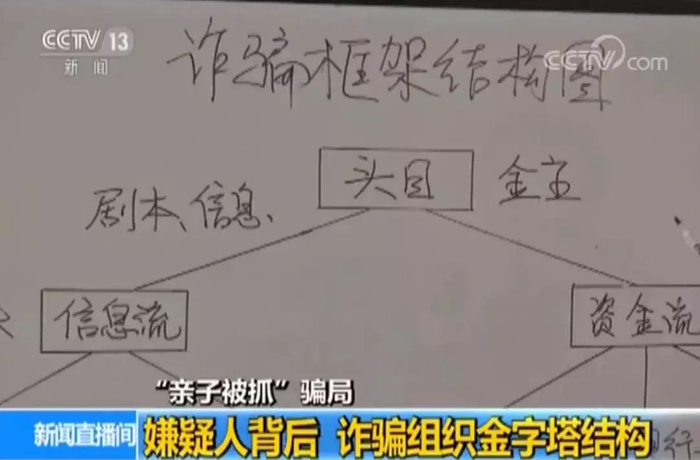 CCTV 13
新闻
CCTV.com
诈骗框架结构图
头目
金主
剧本、信息、
信息流
资金流
“亲子被抓”骗局
新闻直播间
嫌疑人背后 诈骗组织金字塔结构
行